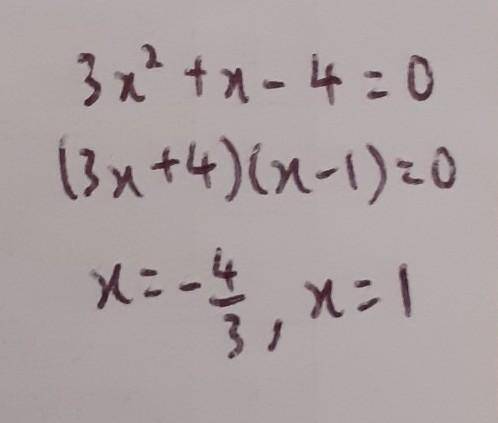 3x² + x - 4 = 0
(3x + 4)(x - 1) = 0
x = -4/3, x = 1